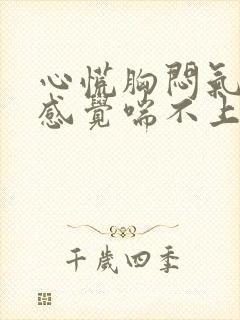 心慌胸悶氣
感覺喘不上
千歲四季